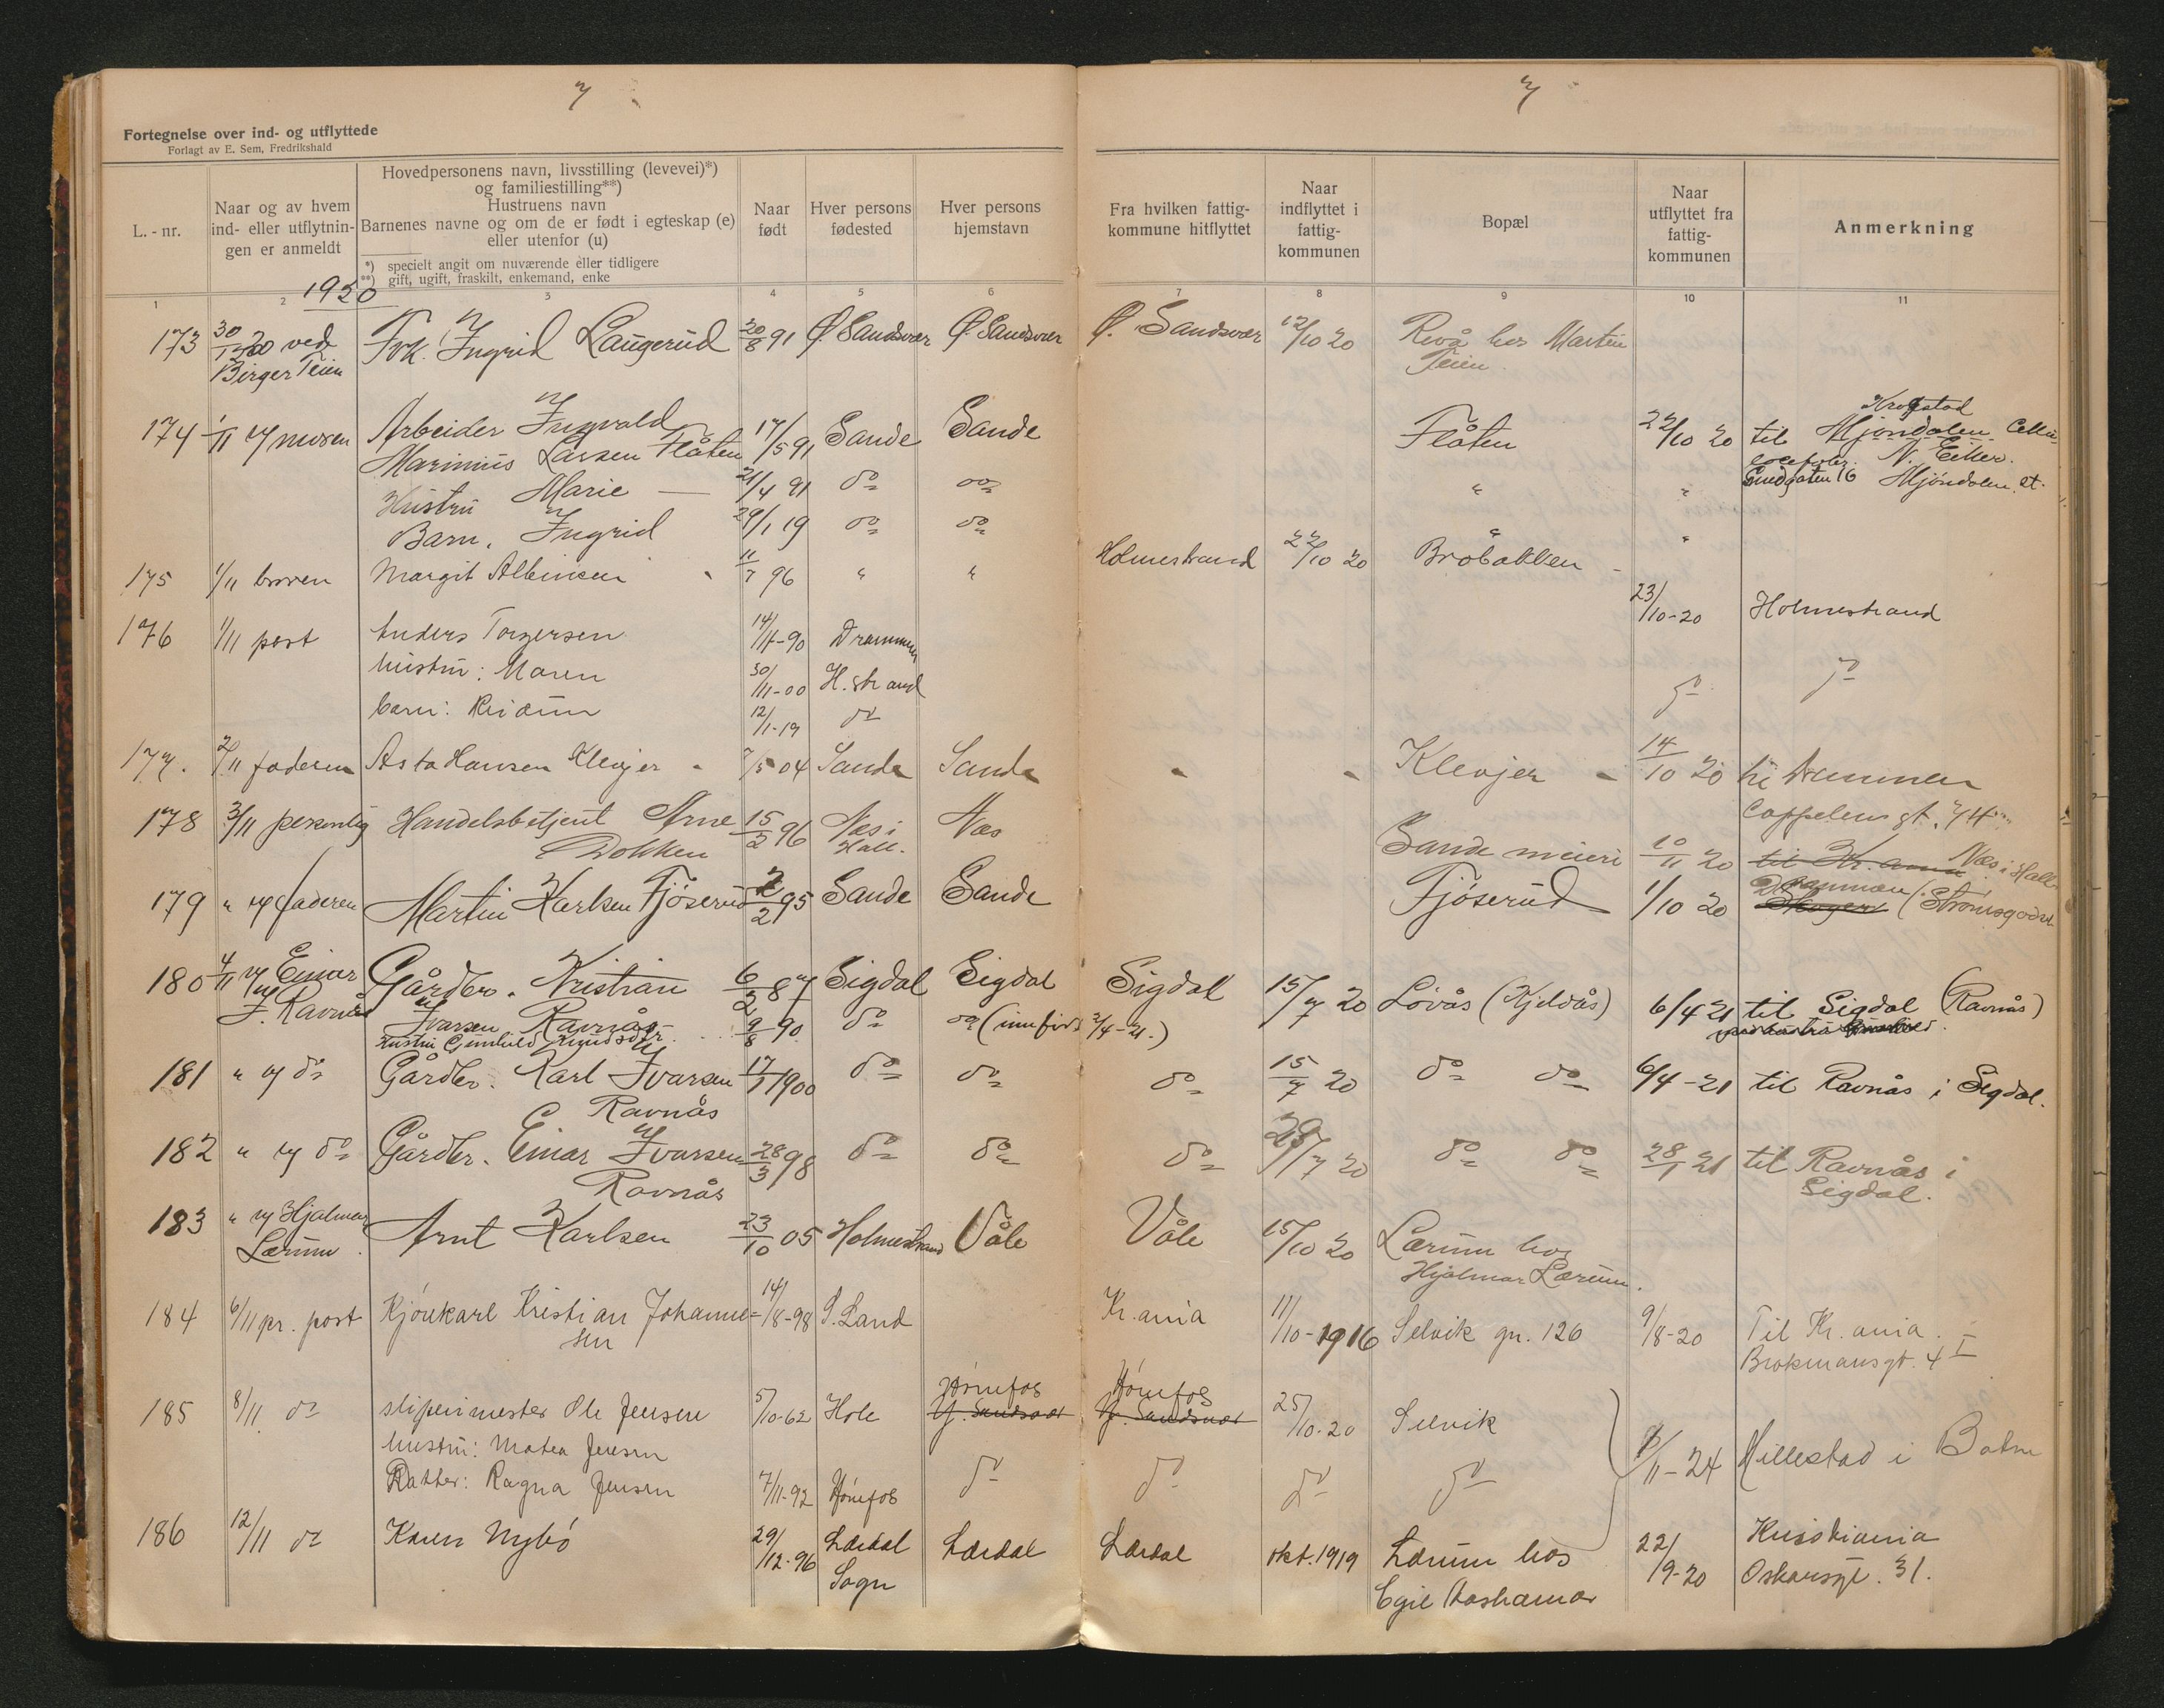 7
7
Fortegnelse over ind- og utflyttede
Forlagt av E. Sem, Fredrikshald
L. - nr.
Naar og av hvem
ind- eller utflytnin-
gen er anmeldt
Hovedpersonens navn, livsstilling (levevei)*)
og familiestilling**)
Hustruens navn
Barnenes navne og om de er født i egteskap (e)
eller utenfor (u)
*) specielt angit om nuværende eller tidligere
**) gift, ugift, fraskilt, enkemand, enke
Naar
født
Hver persons
fødested
Hver persons
hjemstavn
Fra hvilken fattig-
kommune hitflyttet
Naar
indflyttet i
fattig-
kommunen
Bopæl
Naar
utflyttet fra
fattig-
kommunen
Anmerkning
1 2 3 4 5 6 7 8 9 10 11
1920
173 30/12 20 ved Frk. Ingrid Laugerud 20/8 91 Ø. Sandsvær Ø. Sandsvær Ø. Sandsvær 12/10 20 Revå hos Martin
Birger Teien Teien
Krogstad
174 1/11 Arbeider Ingvald 17/5 91 Sande Sande Flåten 22/10 20 til Mjøndalen Cellu-
Marinius Larsen Flåten losefabr. N. Eiker.
Hustru Marie — 21/4 91 do do " " Smidgaten 16 Mjøndalen st.
Barn. Ingrid 29/1 19 do do " "
175 1/11 broren Margit Albinsen 11/7 96 " " Holmestrand 22/10 20 Bråbakken
176 1/11 post Anders Torgersen 14/11-90 Drammen 23/10-20 Holmestrand
hustru: Maren 30/11-00 H.strand do do
barn: Reidunn 12/1-19 do
177. 2/11 faderen Asta Hansen Klevjer 7/5 04 Sande Sande Klevjer 14/10 20 til Drammen
Cappelens gt. 74
178 3/11 personlig Handelsbetjent Arne 15/2 96 Næs i Næs Sande meieri 10/11 20 til Kr.ania Næs i Hall.
Dokken Hall.
179 " faderen Martin Karlsen Fjøserud 2/2 95 Sande Sande Fjøserud 1/10 20 Skoger Drammen (Strømsgodset
180 4/11 Einar Gårdbr. Kristian 6/2 87 Sigdal Sigdal Sigdal 15/7 20 Løvås (Kjeldås) 6/4 21 til Sigdal (Ravnås)
J. Ravnås Ivarsen Ravnås
hustru Gunhild Knudsdtr. 9/8 90. do do 2/4-21.)
181 " do Gårdbr. Karl Ivarsen 17/1 1900 do do do 15/7 20 do do 6/4-21 til Ravnås i Sigdal.
Ravnås
182 " do Gårdbr. Einar Ivarsen 28/3 98 do do do 29/7 20 do do 28/1 21 til Ravnås i
Ravnås Sigdal.
183 " Hjalmar Arnt Karlsen 23/10 05 Holmestrand Våle Våle 15/10 20 Lærum hos
Lærum. Hjalmar Lærum.
184 6/11 pr. post Kjørekarl Kristian Johanne- 14/8-98 S. Land Kr.ania 11/10-1916 Selvik gn. 126 9/8-20 Til Kr.ania.
sen Brokmansgt. 4 I
185 8/11 do sliperimester Ole Jensen 5/10-62 Hole Hønefos Y. Sandsvær Hønefos Y. Sandsvær 25/10-20 Selvik 8/11-24 Hillestad i Botne
hustru: Matea Jensen
Datter: Ragna Jensen 7/11-92 Hønefos do do do do
186 12/11 do Karen Nybø 29/12-96 Lærdal Lærdal Lærdal okt. 1919 Lærum hos 22/9-20 Kristiania
Sogn Egil Aashamar Oskarsgt. 31.